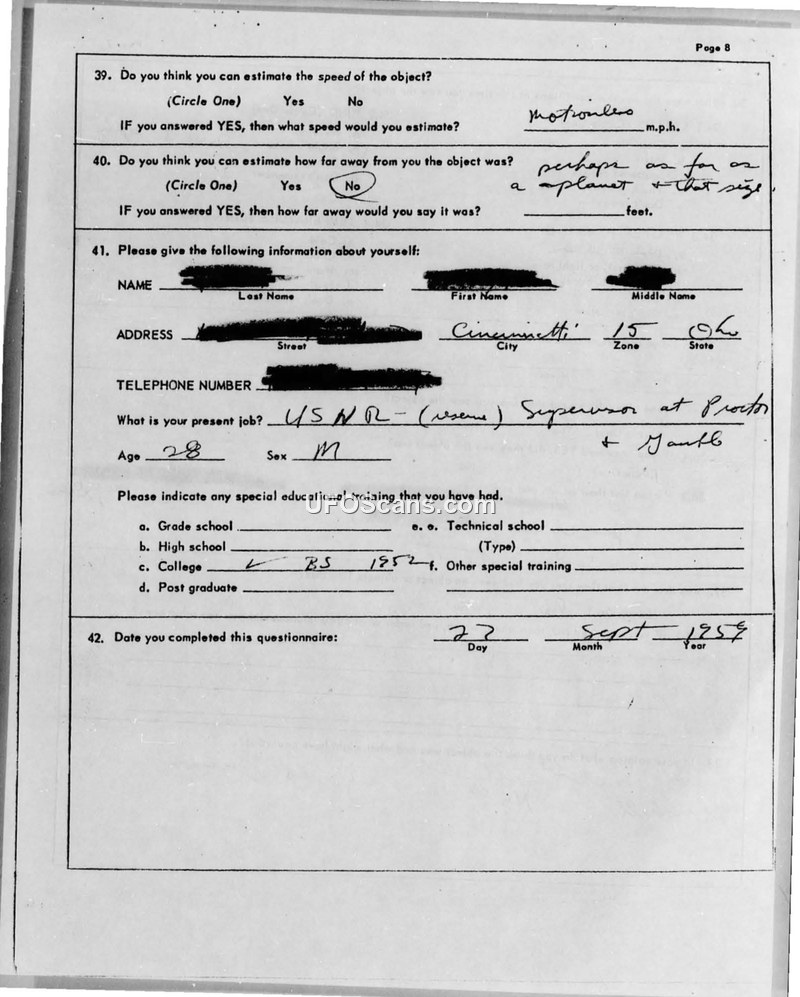 Page 8
39. Do you think you can estimate the speed of the object?
(Circle One) Yes No
motionless
IF you answered YES, then what speed would you estimate? m.p.h.
40. Do you think you can estimate how far away from you the object was?
perhaps as far as
(Circle One) Yes No
a planet + that size.
IF you answered YES, then how far away would you say it was? feet.
41. Please give the following information about yourself:
NAME
Last Name First Name Middle Name
ADDRESS Cincinnatti 15 Oh
Street City Zone State
TELEPHONE NUMBER
What is your present job? USNR - (reserve) Supervisor at Proctor
+ Gamble
Age 28 Sex M
Please indicate any special educational training that you have had.
UFOScans.com
a. Grade school e. e. Technical school
b. High school (Type)
c. College ✓ BS 1952 f. Other special training
d. Post graduate
42. Date you completed this questionnaire: 27 Sept 1959
Day Month Year